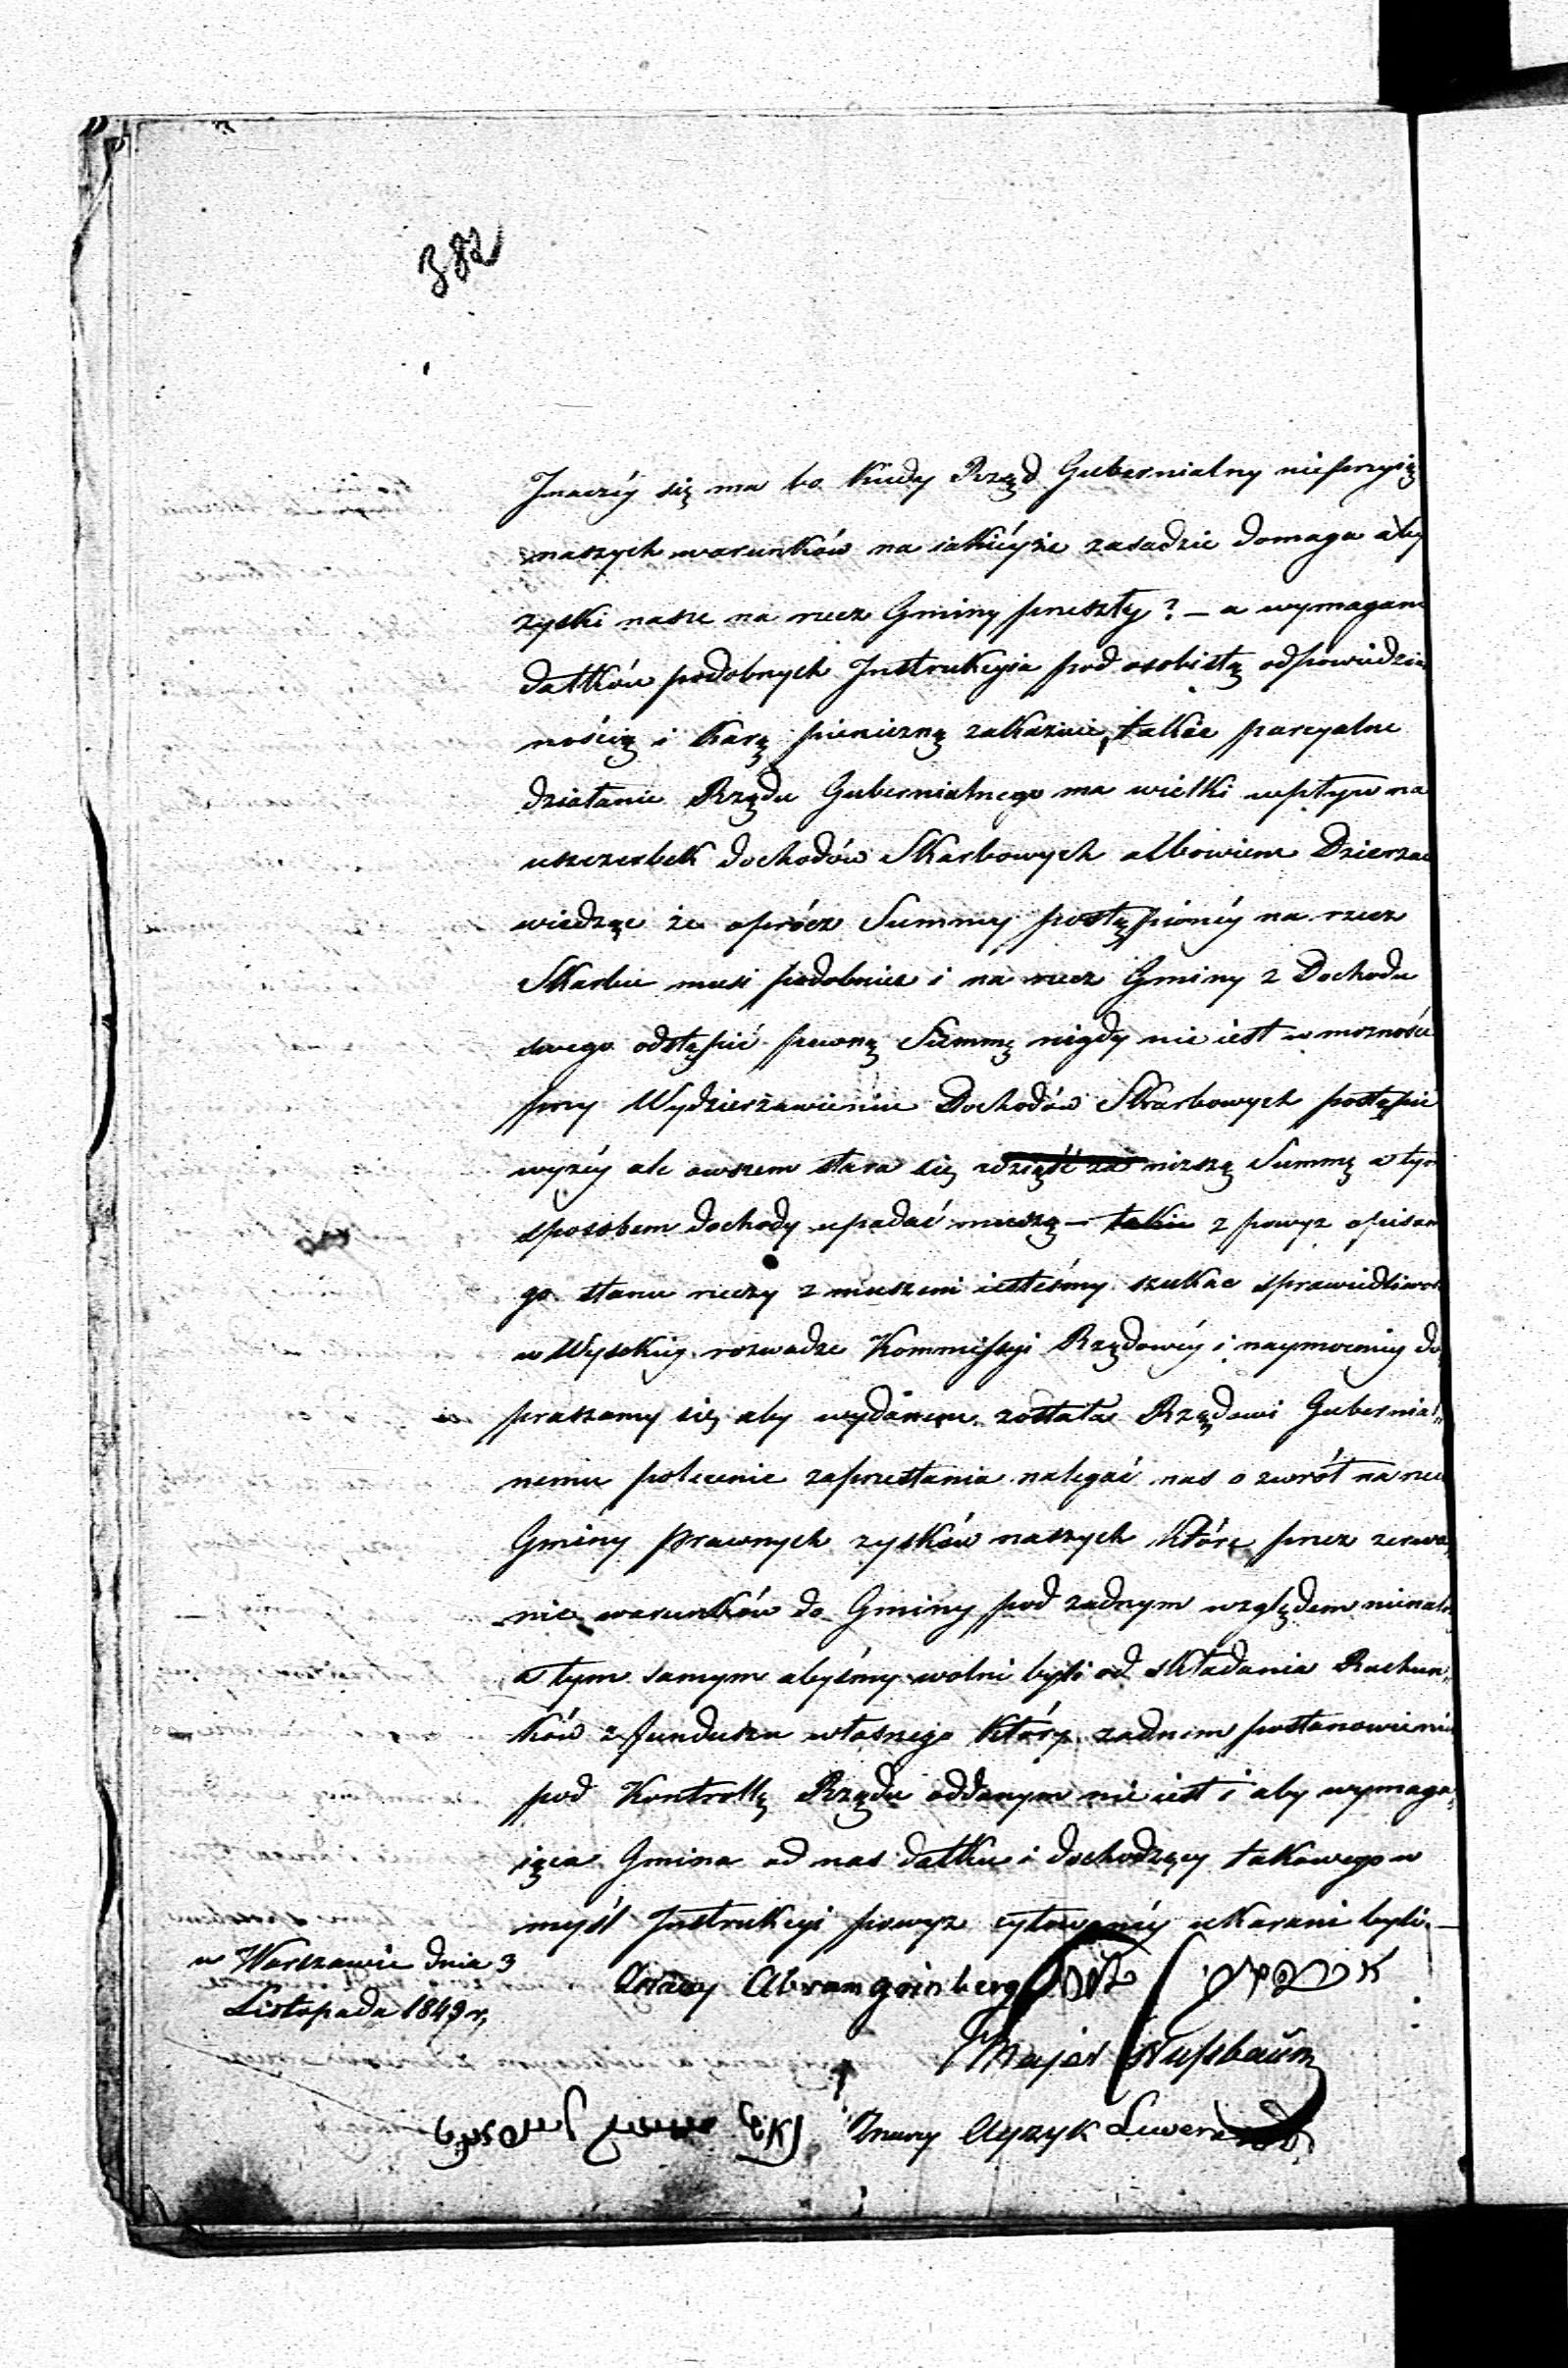 382
Jnaczéy się ma bo kiedy Rząd Gubernialny nieprzyią
naszych warunków na iakiéyże zasadzie domaga aby
zyski nasze na rzecz Gminy przeszły? — a wymagani
datków podobnych Jnstrukcyia pod osobistą odpowiedzial
nością i karą pieniezną zakazuie, takie parcyalne
działanie Rządu Gubernialnego ma wielki wpływ na
uszczerbek dochodów Skarbowych albowiem Dzierzaw
wiedząc że oprócz Summy postąpionéy na rzecz
Skarbu musi podobnież i na rzecz Gminy z Dochodu
swego odstąpić pewną Summę nigdy nie iest w mozności
przy Wydzierżawieniu Dochodów Skarbowych postąpić
wyzéy ale owszem stara się wziąść za nizszą Summę a tym
sposobem dochody upadać muszą — takie z powyz opisan
go stanu rzeczy zmuszeni iesteśmy szukac sprawiedliwoś
w Wysokiey rozwadze Kommissyi Rządowéy i naymocniey do
praszamy się aby wydanem została Rządowi Gubernial„
nemu polecenie zaprzestania nalegać nas o zwrót na rzecz
Gminy prawnych zysków naszych które przez zerwa„
nie warunków do Gminy pod zadnym względem nienależ
a tym samym abyśmy wolni byli od składania Rachun„
ków z funduszu własnego który zadnem postanowieniem
pod Kontrollę Rządu oddanym nie iest i aby wymaga„
iąca Gmina od nas datku i dochodzący takowego w
myśl Jnstrukcyi powyz cytowanéy ukarani byli. —
w Warszawie dnia 3
Listopada 1849 r,
Abram grinberg
Majer Nussbaum
Ayzyk